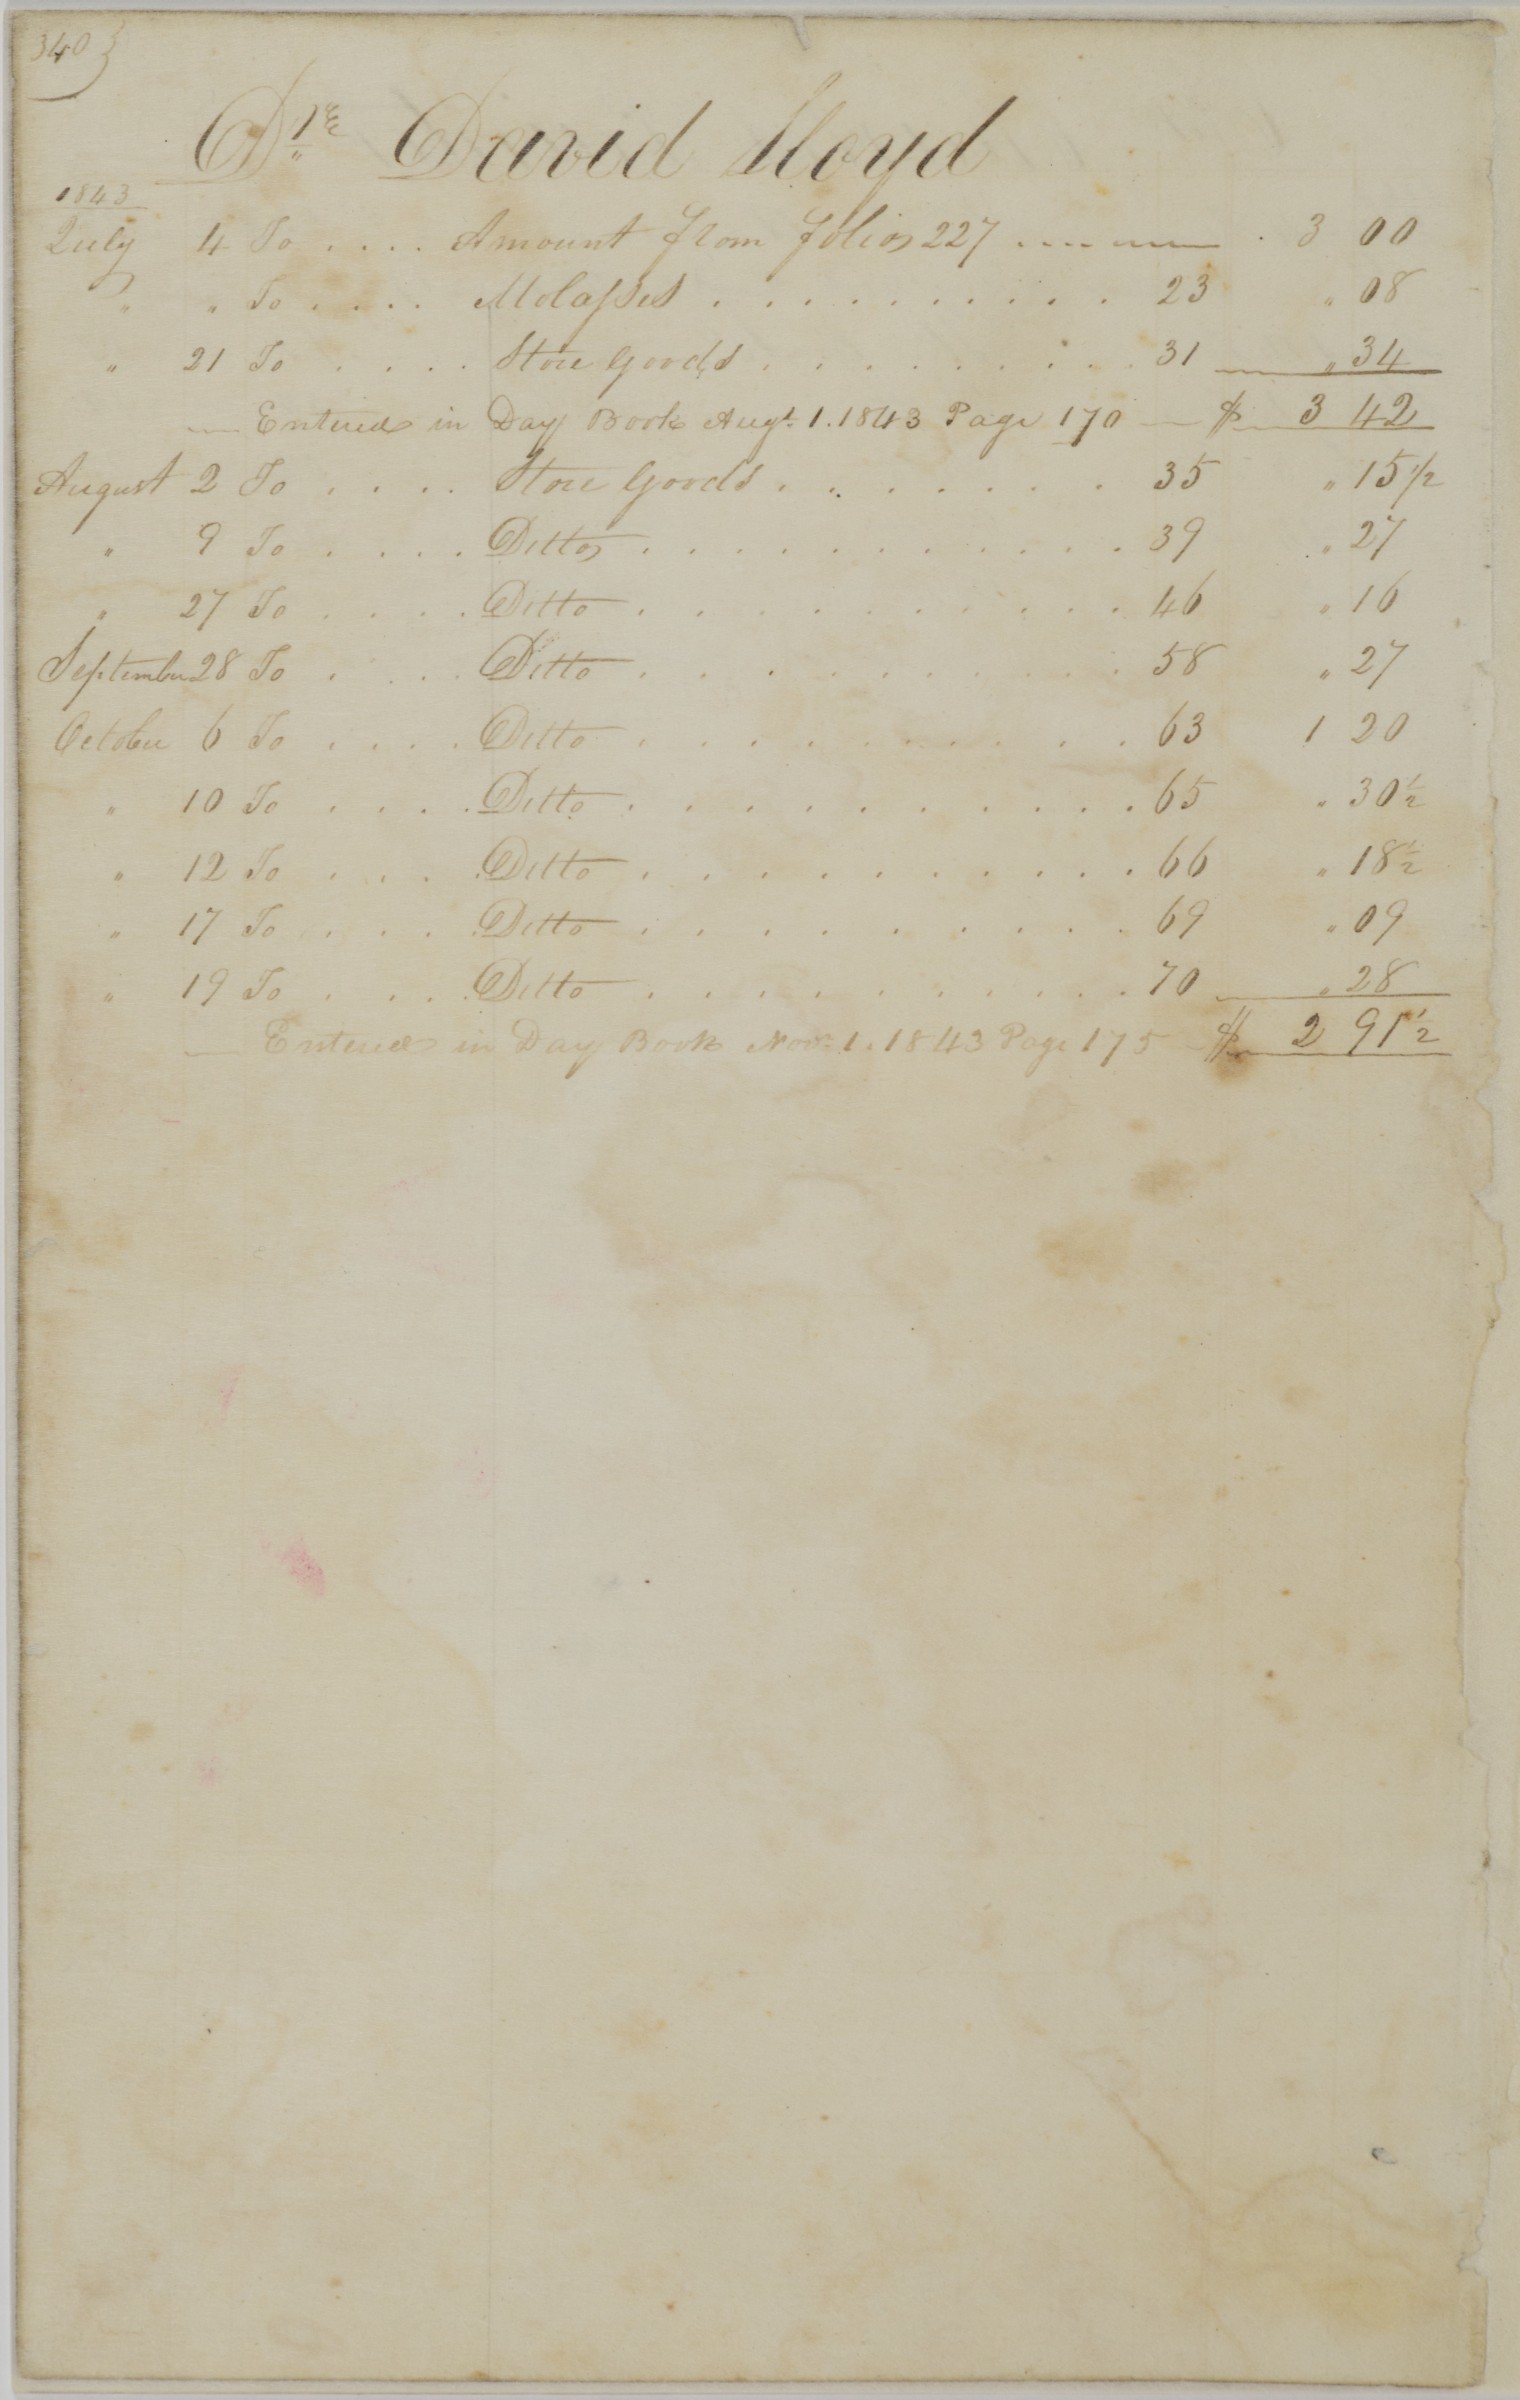 340}
Dr. David Lloyd
1843
July 4 To .... Amount from folio 227 ........ 3 00
" " To .... Molasses .......... 23 " 08
" 21 To .... Store Goods .......... 31 " 34
— Entered in Day Book Augt. 1. 1843 Page 170 — $ 3 42
August 2 To .... Store Goods ........ 35 " 15 1/2
" 9 To .... Ditto .......... 39 " 27
" 27 To .... Ditto .......... 46 " 16
September 28 To .... Ditto .......... 58 " 27
October 6 To .... Ditto .......... 63 1 20
" 10 To .... Ditto .......... 65 " 30 1/2
" 12 To .... Ditto .......... 66 " 18 1/2
" 17 To .... Ditto .......... 69 " 09
" 19 To .... Ditto .......... 70 " 28
— Entered in Day Book Novr. 1. 1843 Page 175 — $ 2 91 1/2